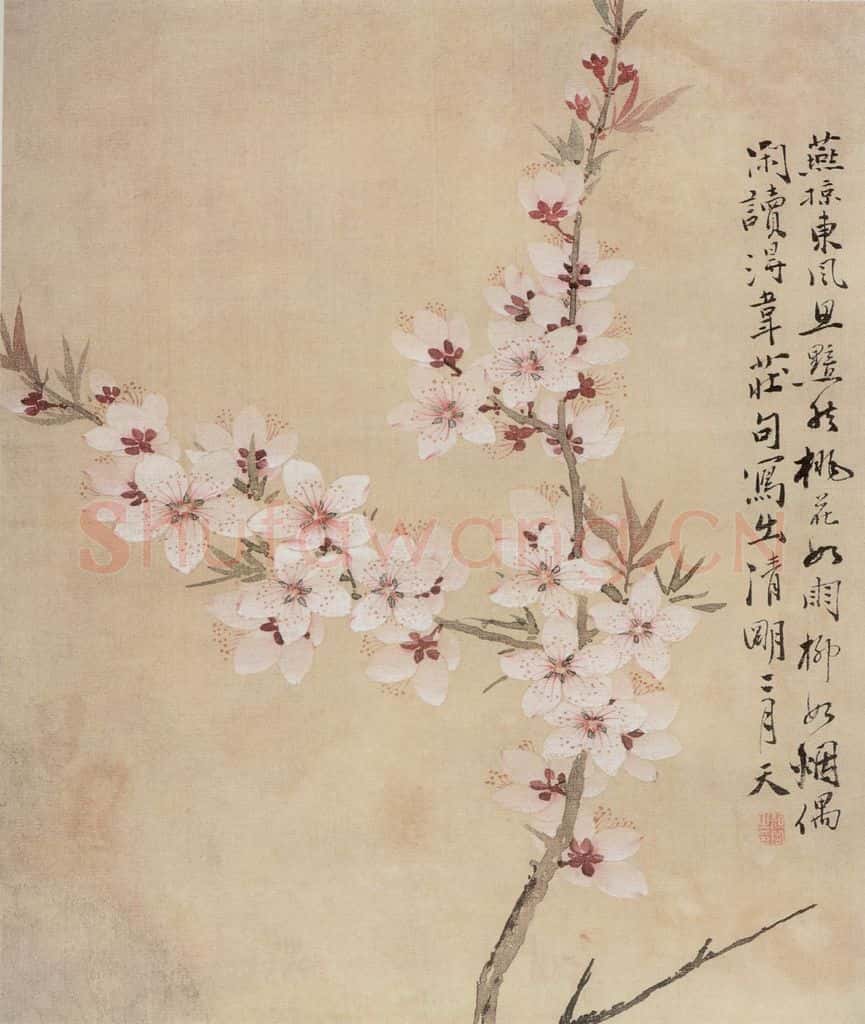 燕掠東風且黯然桃花如雨柳如烟偶
閑讀淂韋莊句寫出清眀二月天
Shufawang.CN